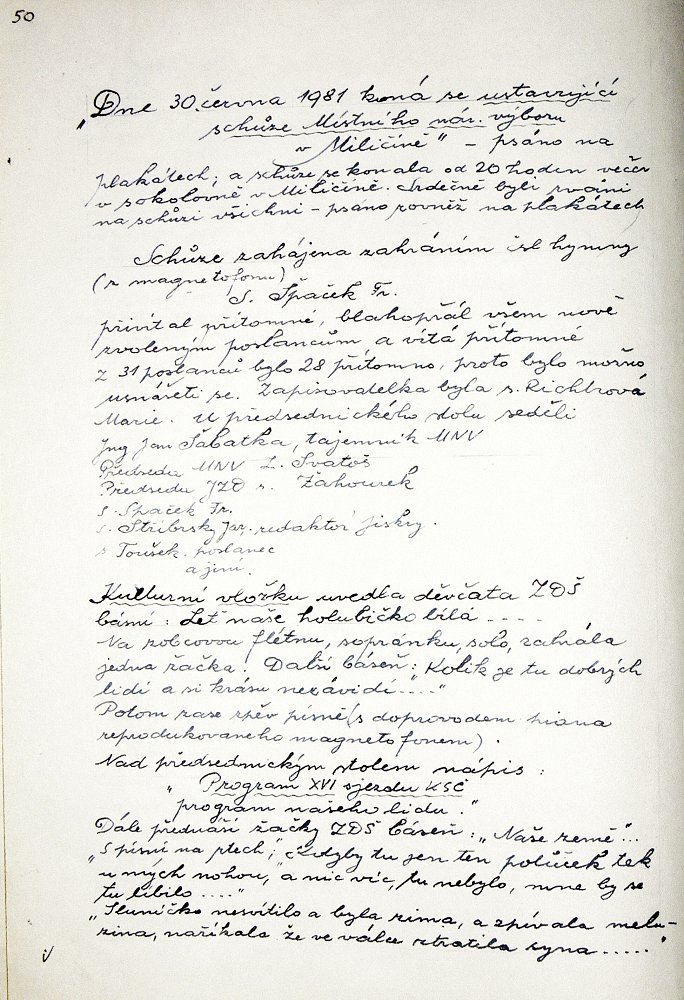 50
„Dne 30. června 1981 koná se ustavující
schůze Místního nár. výboru
v Miličíně" – psáno na
plakátech; a schůze se konala od 20 hodin večer
v sokolovně v Miličíně. Srdečně byli zváni
na schůzi všichni – psáno rovněž na plakátech
Schůze zahájena zahráním čsl hymny
(z magnetofonu)
S. Špaček Fr.
přivítal přítomné, blahopřál všem nově
zvoleným poslancům a vítá přítomné
Z 31 poslanců bylo 28 přítomno, proto bylo možno
usnášeti se. Zapisovatelka byla s. Richtrová
Marie. U předsednického stolu seděli
Ing Jan Šabatka, tajemník MNV
Předseda MNV L. Svatoš
Předseda JZD s. Žahourek
s. Špaček Fr.
s. Stříbrský Jar. redaktor Jiskry.
s Toušek. poslanec
a jiní.
Kulturní vložku uvedla děvčata ZDŠ
básní: Leť naše holubičko bílá ....
Na zobcovou flétnu, sopránku, solo, zahrála
jedna žačka. Další báseň: "Kolik je tu dobrých
lidí a si krásu nezávidí...."
Potom zase zpěv písně (s doprovodem piana
reprodukovaného magnetofonem).
Nad předsednickým stolem nápis:
„Program XVI sjezdu KSČ
program našeho lidu."
Dále přednáší žačky ZDŠ báseň: „Naše země"...
„S písní na rtech;" „Kdyby tu jen ten políček tek
u mých nohou, a nic víc, tu nebylo, mne by se
tu líbilo ...."
„Sluníčko nesvítilo a byla zima, a zpívala melu-
zina, naříkala že ve válce ztratila syna ....."
i/